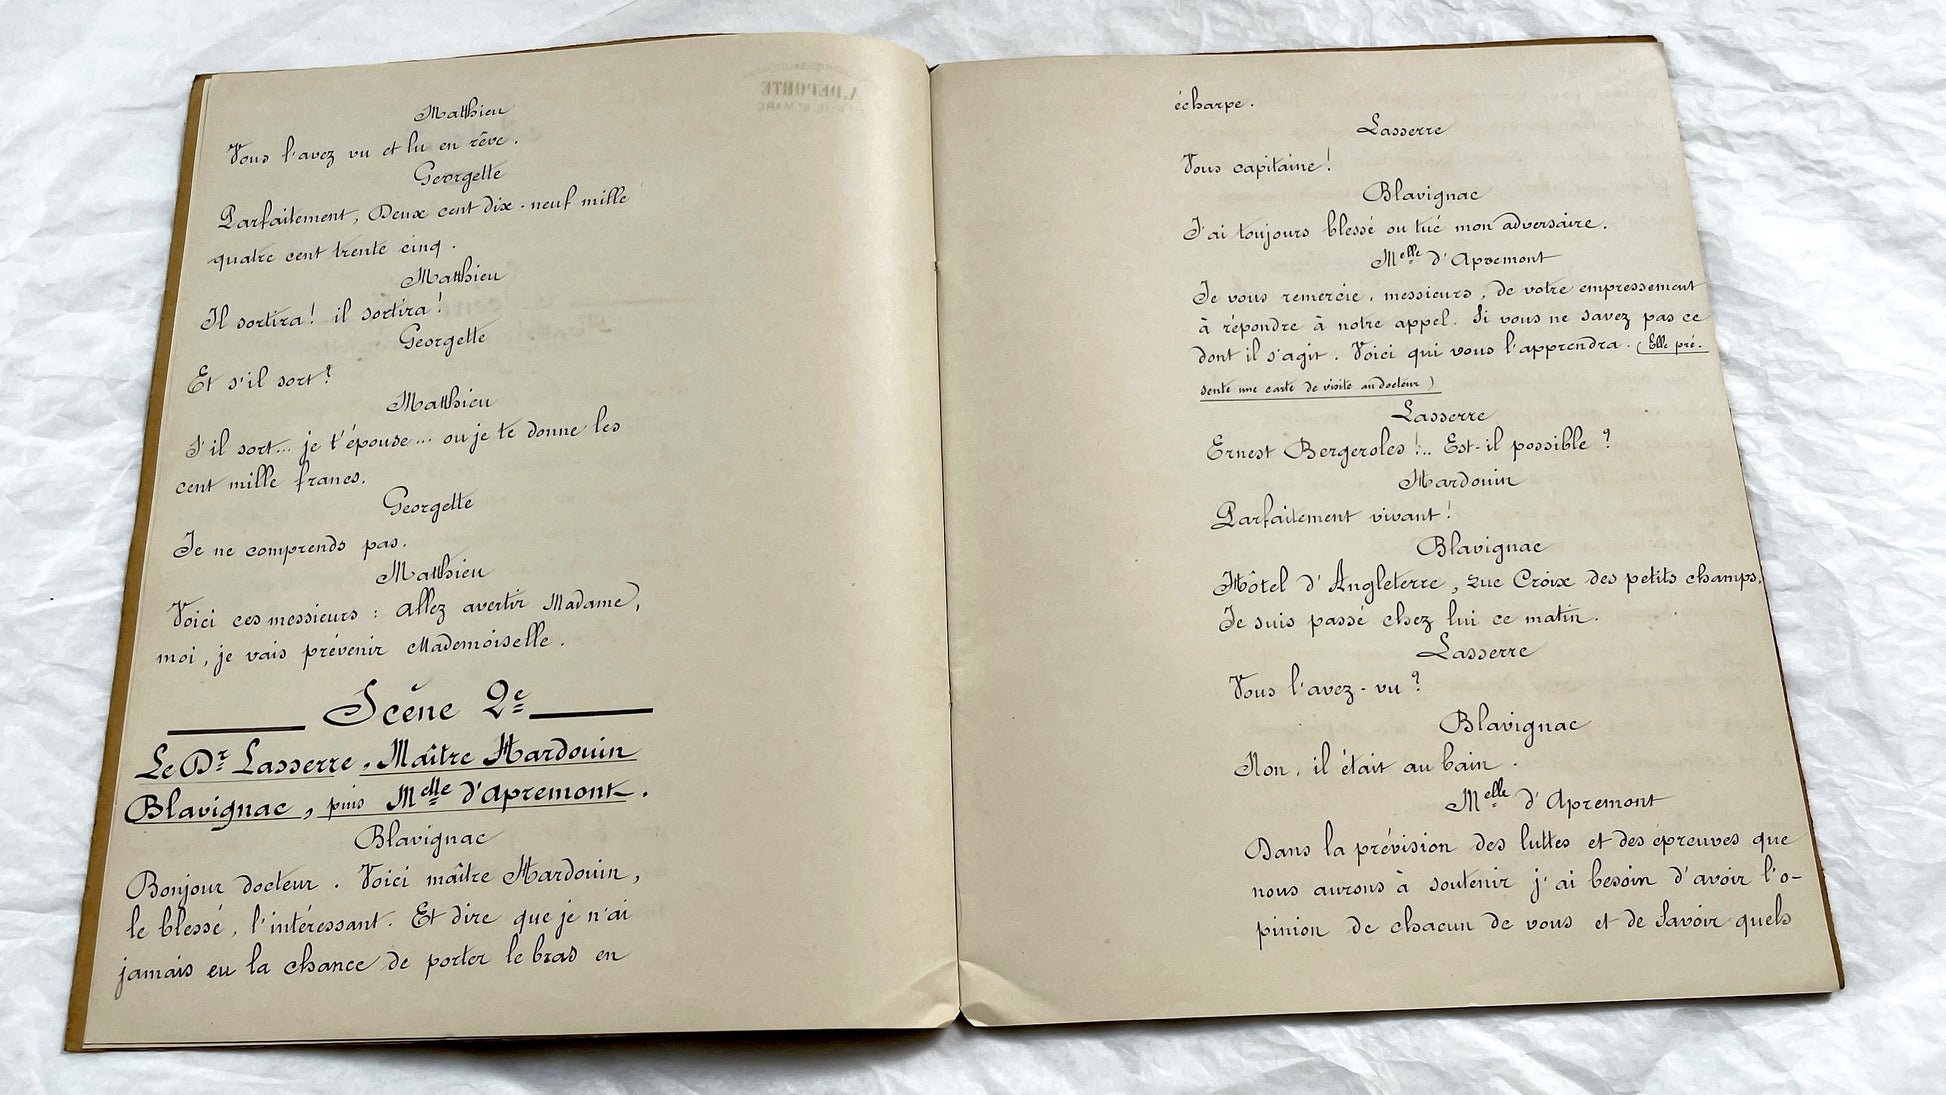 Matthieu
Vous l'avez vu et lu en rêve.
Georgette
Parfaitement, Deux cent dix-neuf mille
quatre cent trente cinq.
Matthieu
Il sortira! il sortira!
Georgette
Et s'il sort?
Matthieu
S'il sort... je t'épouse... ou je te donne les
cent mille francs.
Georgette
Je ne comprends pas.
Matthieu
Voici ces messieurs : Allez avertir Madame,
moi, je vais prévenir Mademoiselle.
Scène 2e
Le Dr Lasserre, Maître Hardouin
Blavignac, puis Melle d'Apremont.
Blavignac
Bonjour docteur. Voici maître Hardouin,
le blessé, l'intéressant. Et dire que je n'ai
jamais eu la chance de porter le bras en
A. DEPORTE
RUE St MARC
écharpe.
Lasserre
Vous capitaine!
Blavignac
J'ai toujours blessé ou tué mon adversaire.
Melle d'Apremont
Je vous remercie, messieurs, de votre empressement
à répondre à notre appel. Si vous ne savez pas ce
dont il s'agit. Voici qui vous l'apprendra. (Elle pré-
sente une carte de visite au docteur)
Lasserre
Ernest Bergeroles!.. Est-il possible?
Hardouin
Parfaitement vivant!
Blavignac
Hôtel d'Angleterre, rue Croix des petits champs.
Je suis passé chez lui ce matin.
Lasserre
Vous l'avez-vu?
Blavignac
Non, il était au bain.
Melle d'Apremont
Dans la prévision des luttes et des épreuves que
nous aurons à soutenir j'ai besoin d'avoir l'o-
pinion de chacun de vous et de savoir quels